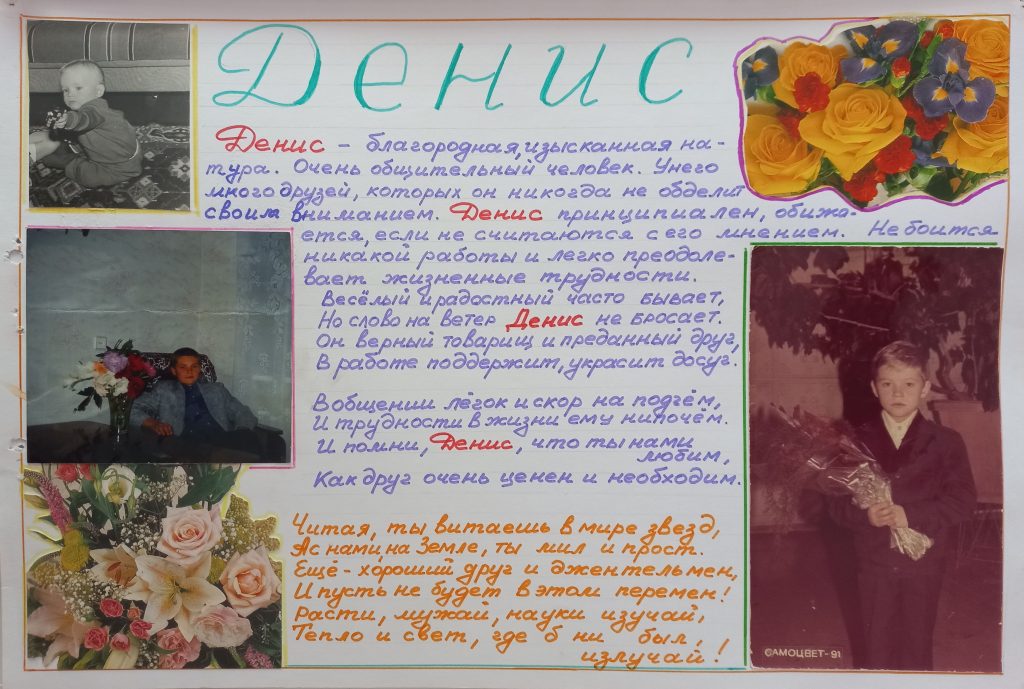 Денис
Денис – благородная, изысканная на-
тура. Очень общительный человек. У него
много друзей, которых он никогда не обделит
своим вниманием. Денис принципиален, обижа-
ется, если не считаются с его мнением. Не боится
никакой работы и легко преодоле-
вает жизненные трудности.
Весёлый и радостный часто бывает,
Но слово на ветер Денис не бросает.
Он верный товарищ и преданный друг,
В работе поддержит, украсит досуг.
В общении лёгок и скор на подъём,
И трудности в жизни ему нипочём.
И помни, Денис, что ты нами
любим,
Как друг очень ценен и необходим.
Читая, ты витаешь в мире звезд,
А с нами, на Земле, ты мил и прост.
Ещё - хороший друг и джентельмен,
И пусть не будет в этом перемен!
Расти, мужай, науки изучай,
Тепло и свет, где б ни был,
излучай!
САМОЦВЕТ-91